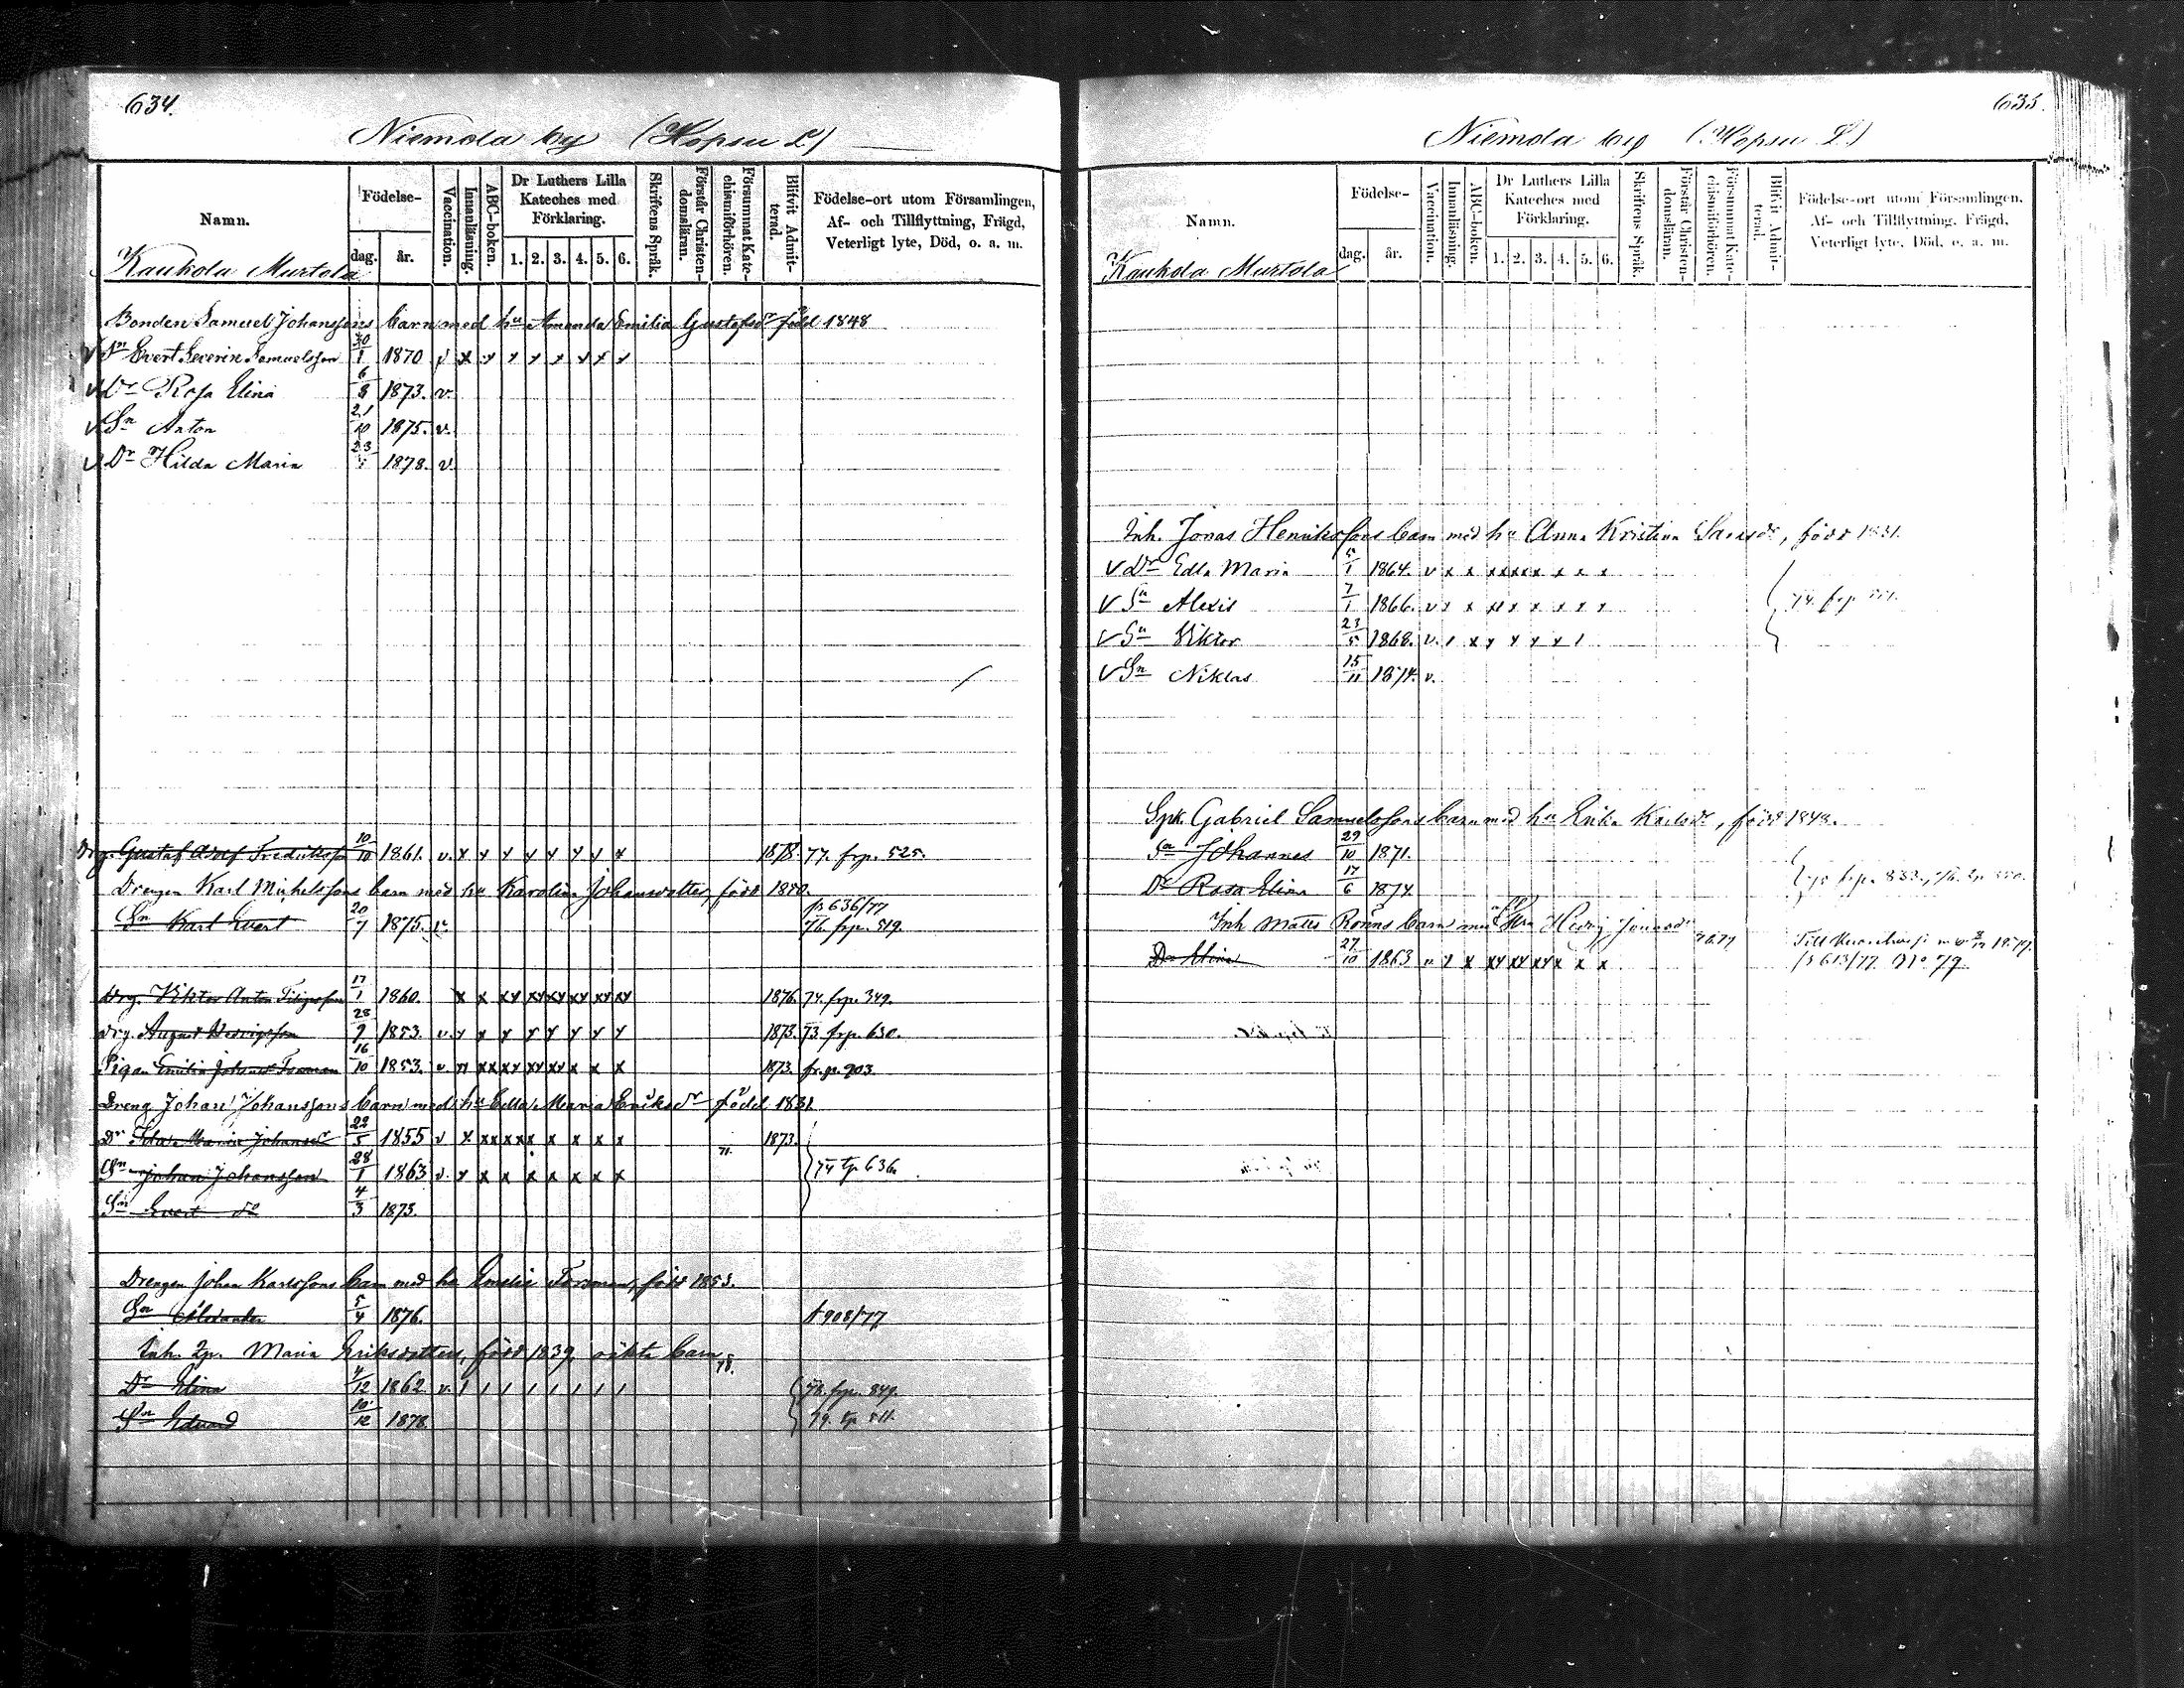 634.
Niemola by (Hopsu L)
Namn.
Födelse-
dag.
år.
Vaccination.
Innanläsning.
ABC-boken.
Dr Luthers Lilla Kateches med Förklaring.
1. 2. 3. 4. 5. 6.
Skriftens Språk.
Förstår Christen-domsläran.
Försummat Kate-chismiförhören.
Blivit Admit-terad.
Födelse-ort utom Församlingen, Af- och Tillflyttning, Frägd, Veterligt lyte, Död, o. a. m.
Kaukola Murtola
Bonden Samuel Johanssons barn med hu Amanda Emilia Gustafsdr född 1848
v Sn Evert Severin Samuelsson 30/1 1870 v x x x x x x x x
v Dr Rosa Elina 6/8 1873. v.
v Sn Anton 21/10 1875. v.
v Dr Hilda Maria 23 1878. v
Drg. Gustaf Adolf Fredriksson 10/10 1861. v. x x x x x x x x 1878. 77. frp. 525.
Drengen Karl Michelssons barn med hu Karolina Johansdotter, född 1850.
fr 636/77
Sn Karl Evert 20/7 1875. v. 76. frp. 519.
Drg. Viktor Anton Filipsson 17/1 1860. x x xx xx xx xx xx xx 1876. 74. frp. 349.
Drg. August Hedvigsson 28/9 1853. v. x x x x x x x x 1873. 73. frp. 630.
Pigan Emilia Johansdr Forsman 16/10 1853. v. x xx xx xx xx x x x 1873. fr. p. 903.
Dreng Johan Johanssons barn med hu Edla Maria Eriksdr född 1831
Dr Maria Johansdr 22/5 1855 v x xx xx x x x x x 1873.
71.
Sn Johan Johansson 28/1 1863 v. x x x x x x x x 74 tp 636
Sn Evert do 4/3 1873.
Drengen Johan Karlssons barn med hu Emilia Forsman, född 1853.
Sn Alexander 5/4 1876. fr 908/77
Inh. Maria Eriksdotters, född 1839, oäkta barn
78.
Dr Elina 4/12 1862 v. 1 1 1 1 1 1 1 1 78. frp. 849.
Sn Eduard 10/12 1878. 79. tp 511.
635.
Niemola by (Hopsu L)
Namn.
Födelse-
dag.
år.
Vaccination.
Innanläsning.
ABC-boken.
Dr Luthers Lilla Kateches med Förklaring.
1. 2. 3. 4. 5. 6.
Skriftens Språk.
Förstår Christen-domsläran.
Försummat Kate-chismiförhören.
Blivit Admit-terad.
Födelse-ort utom Församlingen, Af- och Tillflyttning, Frägd, Veterligt lyte, Död, o. a. m.
Kaukola Murtola
Inh. Jonas Henrikssons barn med hu Anna Kristina Samsdr, född 1831.
v Dr Edla Maria 5/1 1864. v x x xx xx x x x x
v Sn Alexis 7/1 1866. v x x xx x x x x x 74. frp
v Sn Viktor 23/5 1868. v. 1 x x x x x 1
v Sn Niklas 15/11 1874. v.
Spk. Gabriel Samuelssons barn med hu Erika Karlsdr, född 1848.
Sn Johannes 29/10 1871.
Dr Rosa Elina 17/6 1874. frp. 833.
Inh Matts Rönns barn med Hedvig Jonasdr
Dr Alina 27/10 1863 v 1 x xx xx xx x x
fr 613/77 No 79